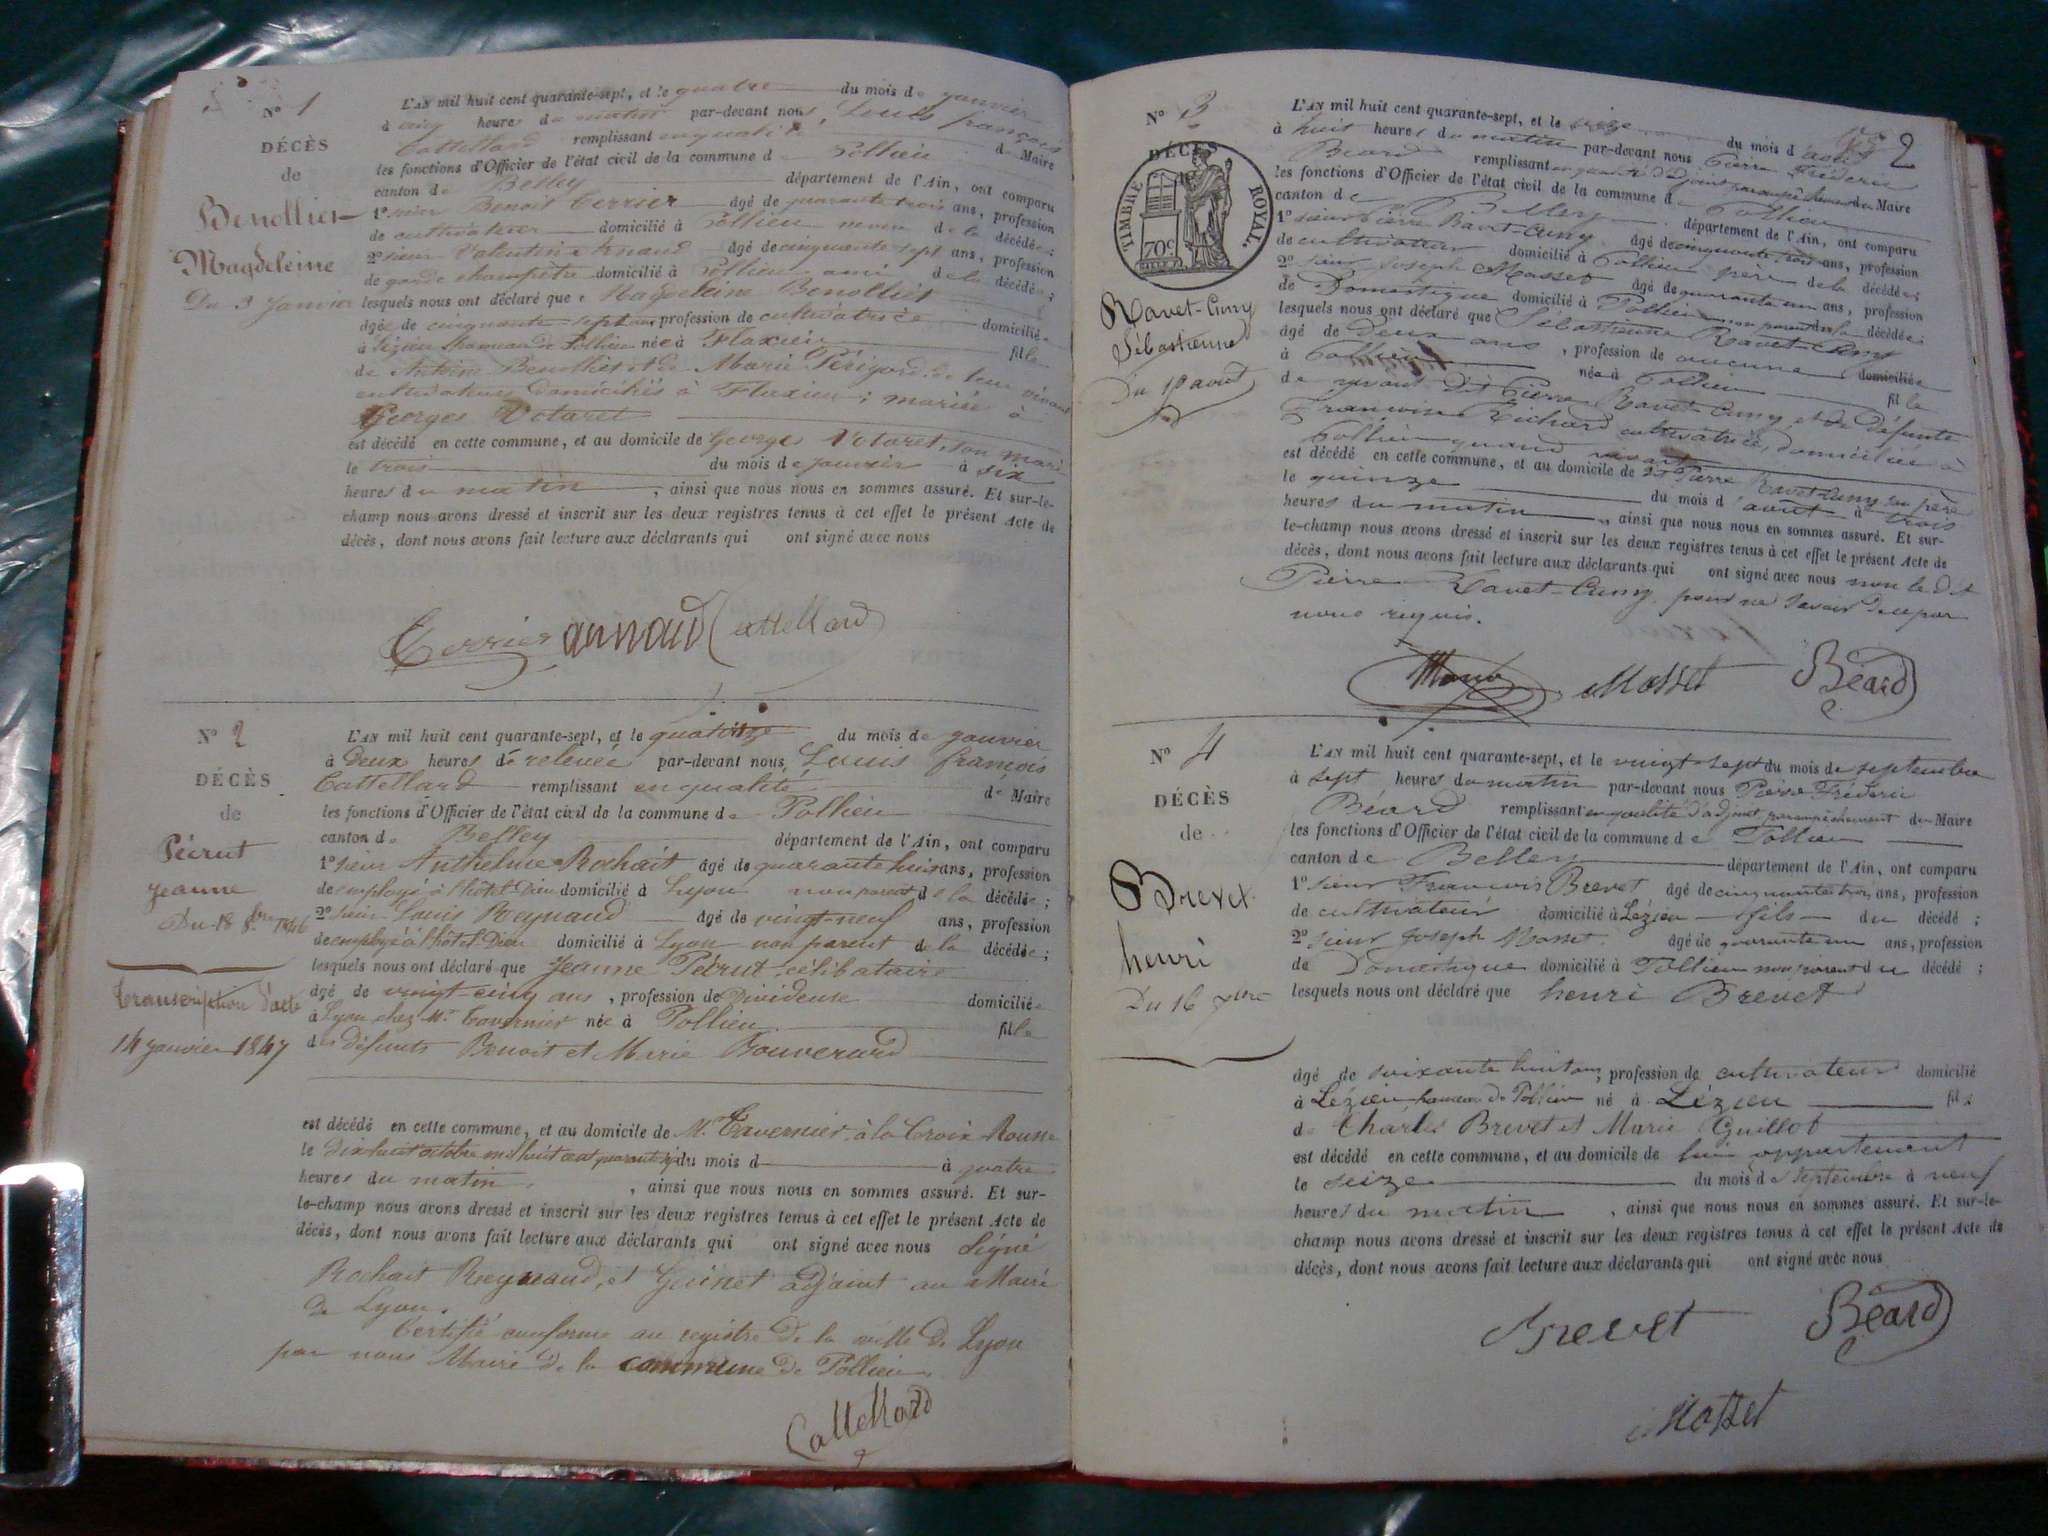 N° 1
DÉCÈS
de
Benollier
Magdeleine
Du 3 Janvier
L'AN mil huit cent quarante-sept, et le quatre du mois de janvier
à cinq heures du matin par-devant nous, Louis françois
Cattellard remplissant en qualité de Maire
les fonctions d'Officier de l'état civil de la commune de Pollieu
canton de Belley département de l'Ain, ont comparu
1° sieur Benoit Terrier âgé de quarante trois ans, profession
de cultivateur domicilié à Pollieu de la décédée;
2° sieur Valentin Arnaud âgé de cinquante sept ans, profession
de garde champêtre domicilié à Pollieu ami de la décédée;
lesquels nous ont déclaré que Magdeleine Benollier
âgée de cinquante sept ans profession de cultivatrice domiciliée
à Lézieu hameau de Pollieu née à Flaxieu fille
de Antoine Benollier et de Marie Périgord de leur vivant
cultivateurs domiciliés à Flaxieu; mariée à
Georges Votaret
est décédé en cette commune, et au domicile de George Votaret, son mari
le trois du mois de janvier à six
heures du matin, ainsi que nous nous en sommes assuré. Et sur-le-
champ nous avons dressé et inscrit sur les deux registres tenus à cet effet le présent Acte de
décès, dont nous avons fait lecture aux déclarants qui ont signé avec nous
Terrier arnaud Cattellard
N° 2
DÉCÈS
de
Péirut
Jeanne
Du 18 8bre 1846
Transcription d'acte
14 janvier 1847
L'AN mil huit cent quarante-sept, et le quatorze du mois de janvier
à deux heures de relevée par-devant nous, Louis françois
Cattellard remplissant en qualité de Maire
les fonctions d'Officier de l'état civil de la commune de Pollieu
canton de Belley département de l'Ain, ont comparu
1° sieur Anthelme Rochait âgé de quarante huit ans, profession
de employé à l'hôtel Dieu domicilié à Lyon non parent de la décédée;
2° sieur Louis Reynaud âgé de vingt-neuf ans, profession
de employé à l'hôtel Dieu domicilié à Lyon non parent de la décédée;
lesquels nous ont déclaré que Jeanne Péirut célibataire
âgé de vingt-cinq ans, profession de Dévideuse domiciliée
à Lyon chez Mr Tavernier née à Pollieu fille
des défunts Benoit et Marie Bouverard
est décédé en cette commune, et au domicile de Mr Tavernier à la Croix Rousse
le dix huit octobre mil huit cent quarante six du mois d à quatre
heures du matin, ainsi que nous nous en sommes assuré. Et sur-
le-champ nous avons dressé et inscrit sur les deux registres tenus à cet effet le présent Acte de
décès, dont nous avons fait lecture aux déclarants qui ont signé avec nous Signé
Rochait Reynaud, et Guinet adjoint au Maire
de Lyon.
Certifié conforme au registre de la ville de Lyon
par nous Maire de la commune de Pollieu
Cattellard
2
N° 3
DÉCÈS
TIMBRE ROYAL.
70c.
Ravet-Cuny
Sébastienne
Du 15 aout
L'AN mil huit cent quarante-sept, et le seize du mois d'août
à huit heures du matin par-devant nous Pierre Fréderic
Béard remplissant en qualité d'adjoint par empêchement du Maire
les fonctions d'Officier de l'état civil de la commune de Pollieu
canton de Belley département de l'Ain, ont comparu
1° sieur Pierre Ravet-Cuny âgé de cinquante trois ans, profession
de cultivateur domicilié à Pollieu père de la décédée;
2° sieur Joseph Mosset âgé de quarante un ans, profession
de Domestique domicilié à Pollieu non parent de la décédée;
lesquels nous ont déclaré que Sébastienne Ravet-Cuny
âgé de deux ans, profession de aucune domiciliée
à Pollieu née à Pollieu fille
de vivant dit Pierre Ravet-Cuny et de défunte
Francoise Richard cultivatrice, domiciliée à
Pollieu quand vivait
est décédé en cette commune, et au domicile de dit Pierre Ravet-Cuny son père
le quinze du mois d'août à trois
heures du matin, ainsi que nous nous en sommes assuré. Et sur-
le-champ nous avons dressé et inscrit sur les deux registres tenus à cet effet le présent Acte de
décès, dont nous avons fait lecture aux déclarants qui ont signé avec nous non le dit
Pierre Ravet-Cuny pour ne savoir de ce par
nous requis.
Mosset Béard
N° 4
DÉCÈS
de
Brevet
henri
Du 16 7bre
L'AN mil huit cent quarante-sept, et le vingt-sept du mois de septembre
à sept heures du matin par-devant nous Pierre Fréderic
Béard remplissant en qualité d'adjoint par empêchement du Maire
les fonctions d'Officier de l'état civil de la commune de Pollieu
canton de Belley département de l'Ain, ont comparu
1° sieur Francois Brevet âgé de cinquante trois ans, profession
de cultivateur domicilié à Lézieu fils du décédé;
2° sieur Joseph Mosset âgé de quarante un ans, profession
de Domestique domicilié à Pollieu non parent du décédé;
lesquels nous ont déclaré que henri Brevet
âgé de soixante huit ans, profession de cultivateur domicilié
à Lézieu hameau de Pollieu né à Lézieu fils
de Charles Brevet et Marie Guillot
est décédé en cette commune, et au domicile de lui appartenant
le seize du mois de septembre à neuf
heures du matin, ainsi que nous nous en sommes assuré. Et sur-le-
champ nous avons dressé et inscrit sur les deux registres tenus à cet effet le présent Acte de
décès, dont nous avons fait lecture aux déclarants qui ont signé avec nous
Brevet Béard
Mosset